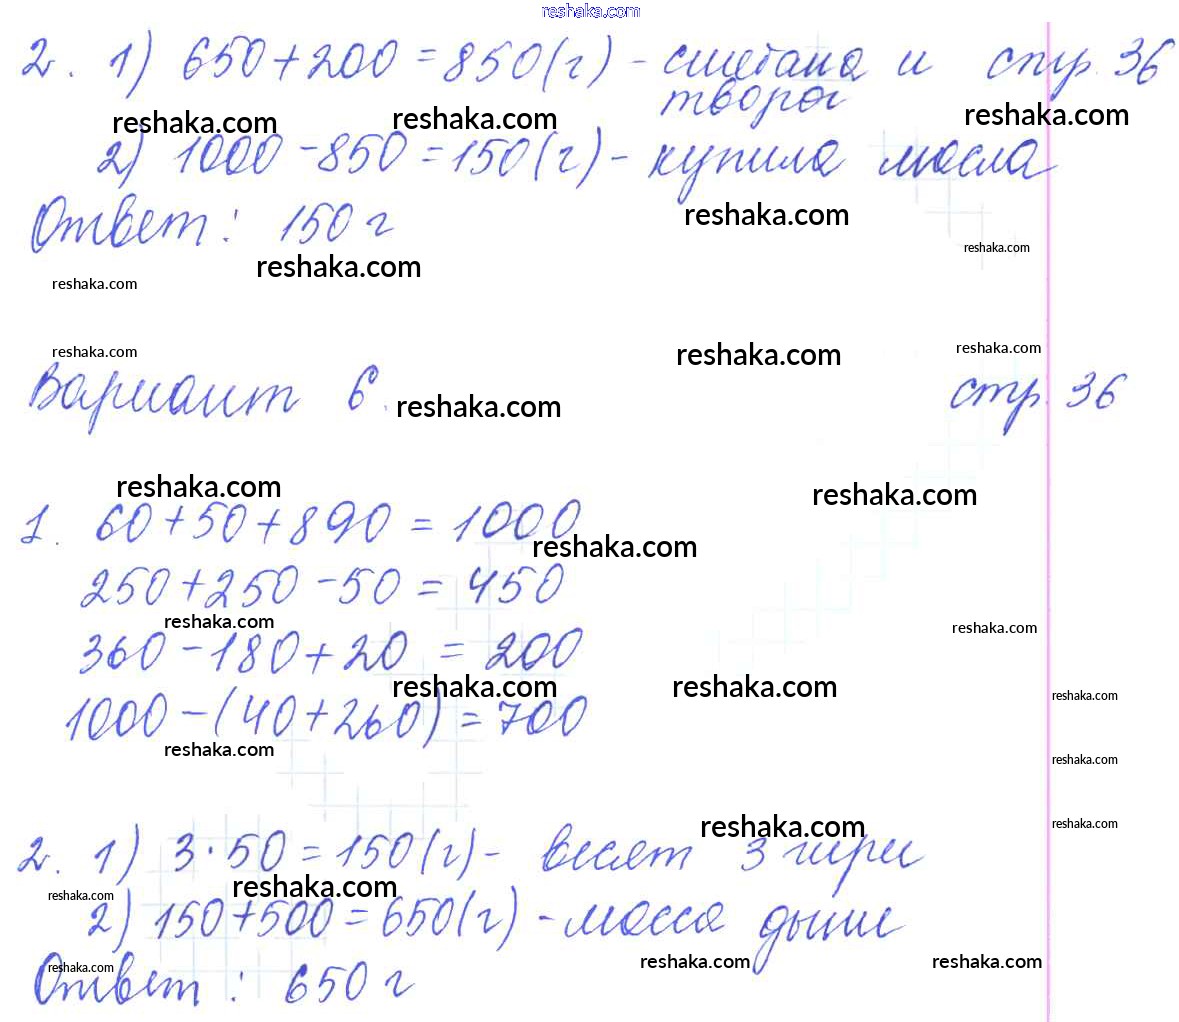 reshaka.com
2. 1) 650+200=850(г) - сметана и стр. 36
творог
reshaka.com reshaka.com reshaka.com
2) 1000-850=150(г) - купила масла
reshaka.com
Ответ: 150 г
reshaka.com
reshaka.com
reshaka.com
reshaka.com reshaka.com reshaka.com
Вариант 6. стр. 36
reshaka.com
reshaka.com reshaka.com
1. 60+50+890=1000
reshaka.com
250+250-50=450
reshaka.com reshaka.com
360-180+20=200
reshaka.com reshaka.com reshaka.com
1000-(40+260)=700
reshaka.com reshaka.com
reshaka.com reshaka.com
2. 1) 3·50=150(г) - весят 3 гири
reshaka.com reshaka.com
2) 150+500=650(г) - масса дыни
reshaka.com reshaka.com reshaka.com
Ответ: 650 г